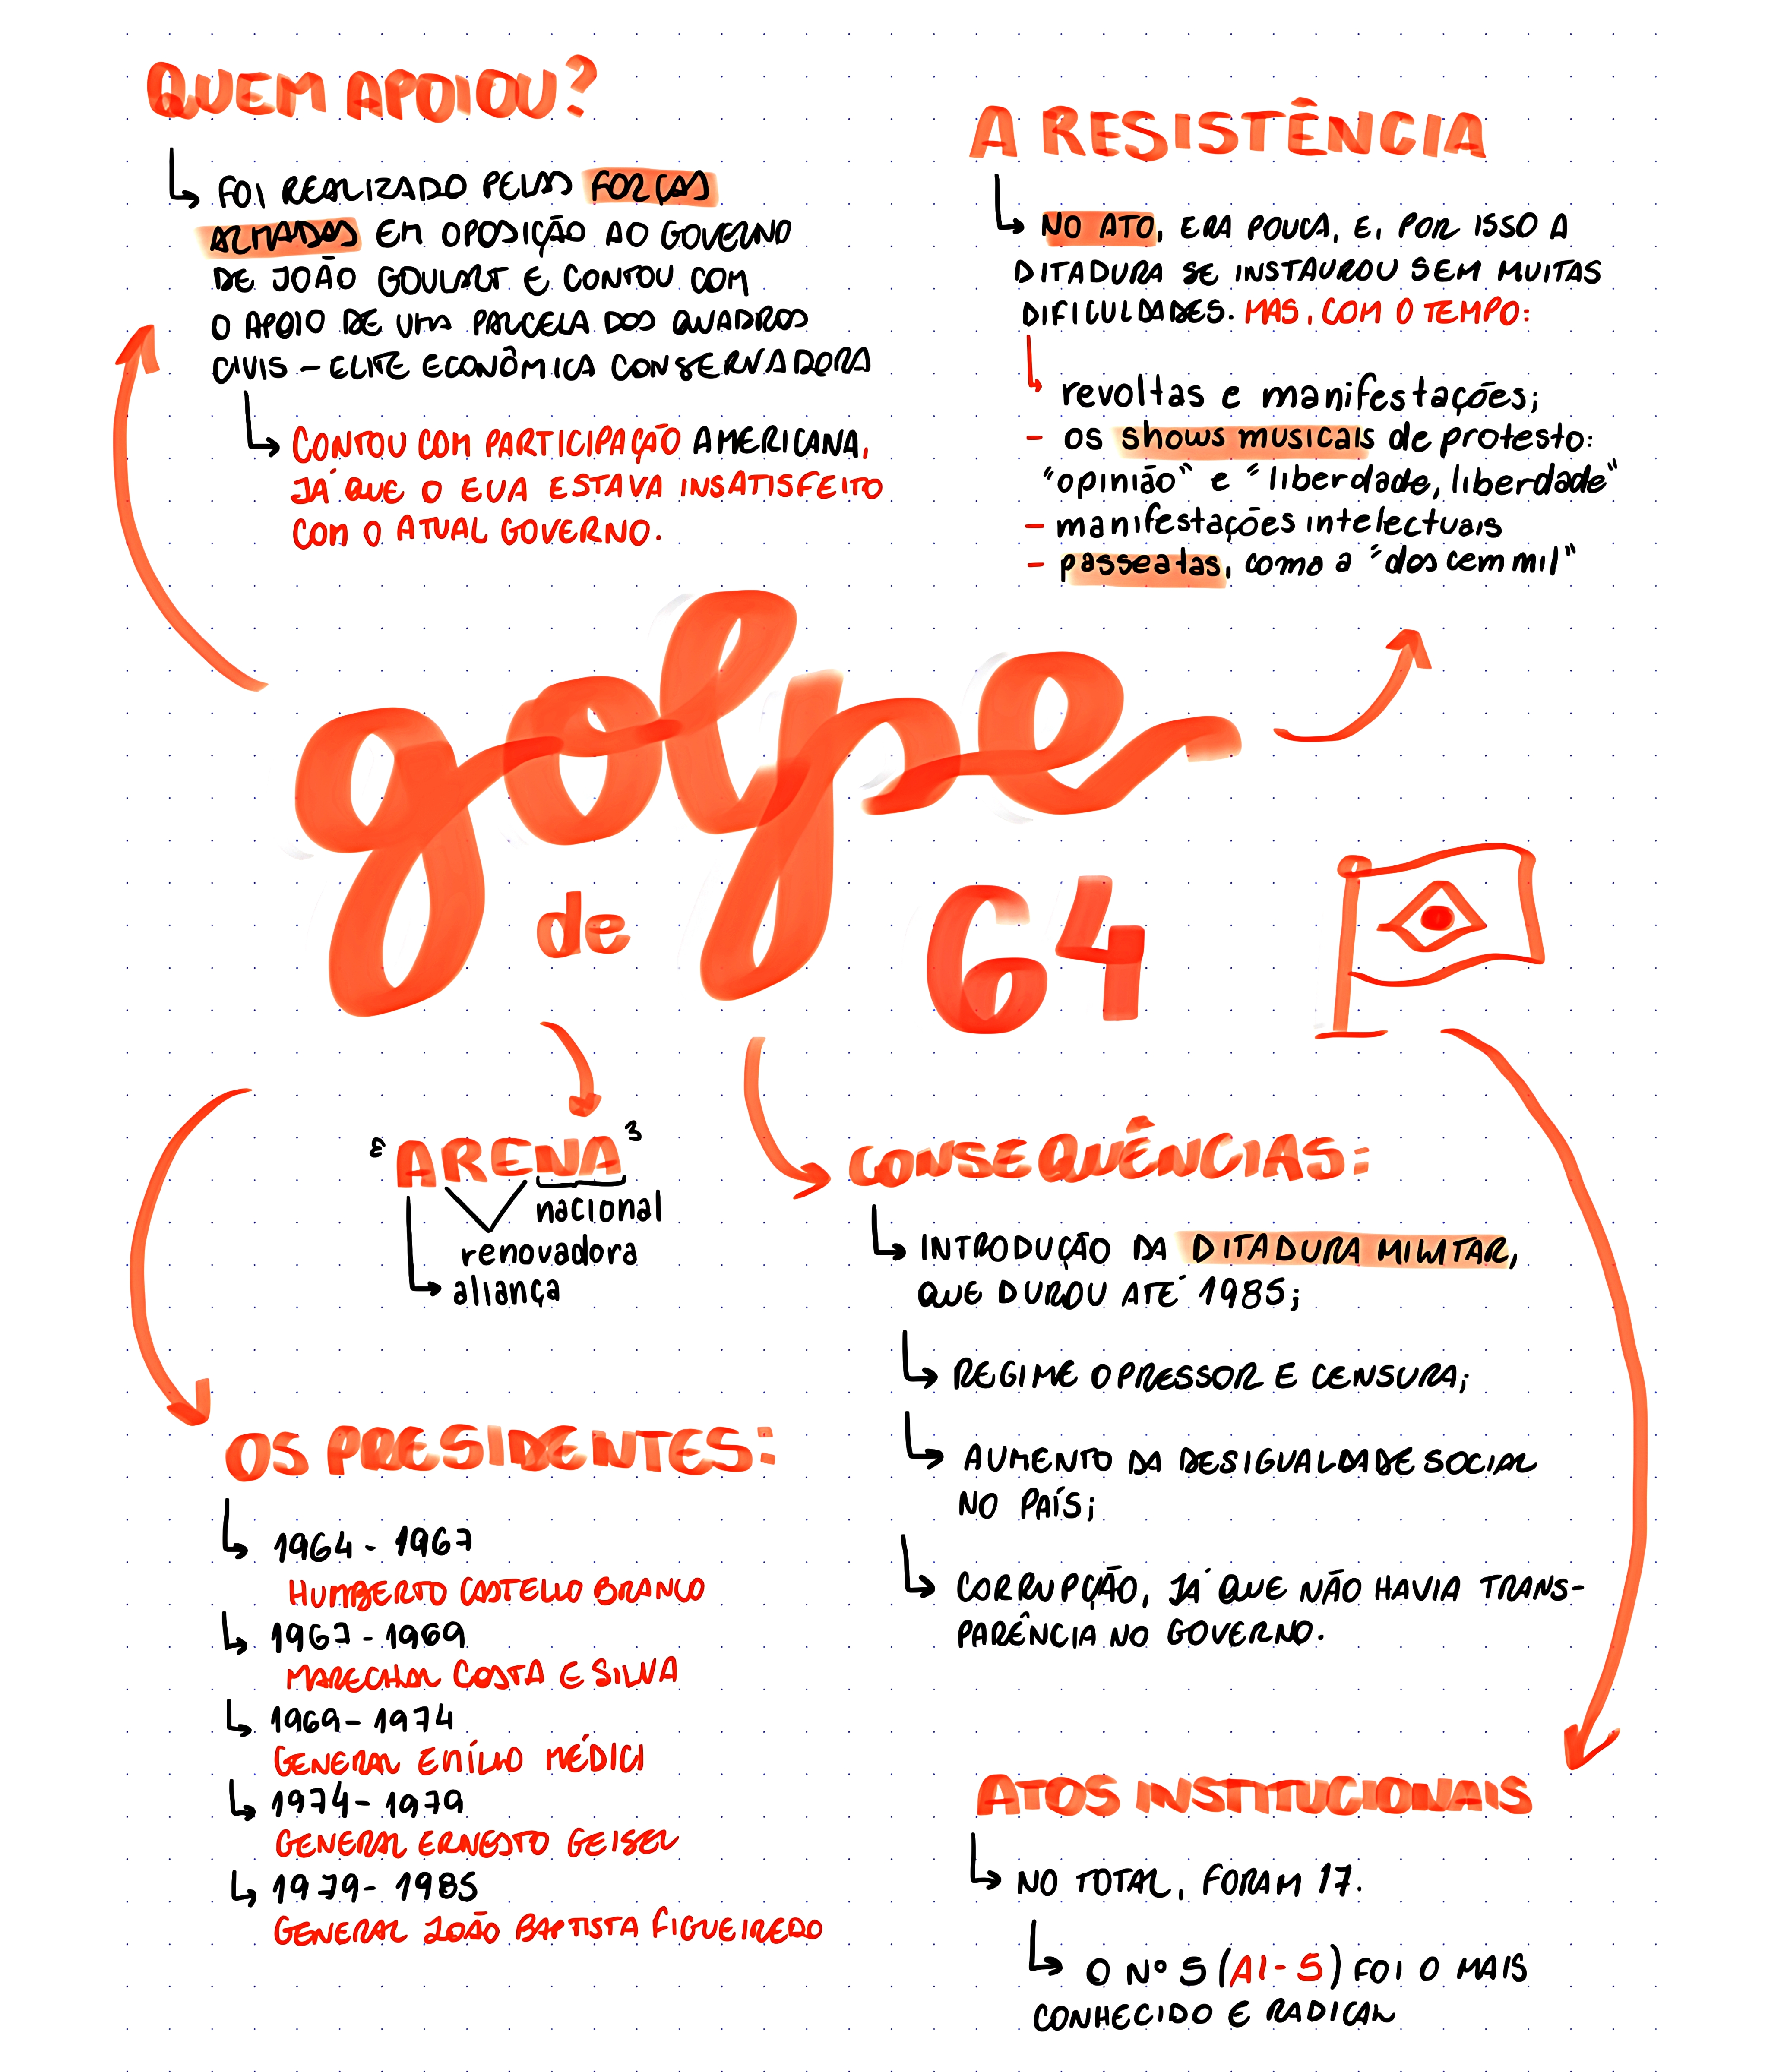 QUEM APOIOU?
FOI REALIZADO PELAS FORÇAS
ARMADAS EM OPOSIÇÃO AO GOVERNO
DE JOÃO GOULART E CONTOU COM
O APOIO DE UMA PARCELA DOS QUADROS
CIVIS - ELITE ECONÔMICA CONSERVADORA
CONTOU COM PARTICIPAÇÃO AMERICANA,
JÁ QUE O EUA ESTAVA INSATISFEITO
COM O ATUAL GOVERNO.
A RESISTÊNCIA
NO ATO, ERA POUCA, E, POR ISSO A
DITADURA SE INSTAUROU SEM MUITAS
DIFICULDADES. MAS, COM O TEMPO:
revoltas e manifestações;
- os shows musicais de protesto:
"opinião" e "liberdade, liberdade"
- manifestações intelectuais
- passeatas, como a "dos cem mil"
golpe
de 64
ARENA
nacional
renovadora
aliança
CONSEQUÊNCIAS:
INTRODUÇÃO DA DITADURA MILITAR,
QUE DUROU ATÉ 1985;
REGIME OPRESSOR E CENSURA;
AUMENTO DA DESIGUALDADE SOCIAL
NO PAÍS;
CORRUPÇÃO, JÁ QUE NÃO HAVIA TRANS-
PARÊNCIA NO GOVERNO.
OS PRESIDENTES:
1964 - 1967
HUMBERTO CASTELLO BRANCO
1967 - 1969
MARECHAL COSTA E SILVA
1969 - 1974
GENERAL EMÍLIO MÉDICI
1974 - 1979
GENERAL ERNESTO GEISEL
1979 - 1985
GENERAL JOÃO BAPTISTA FIGUEIREDO
ATOS INSTITUCIONAIS
NO TOTAL, FORAM 17.
O Nº 5 (AI-5) FOI O MAIS
CONHECIDO E RADICAL